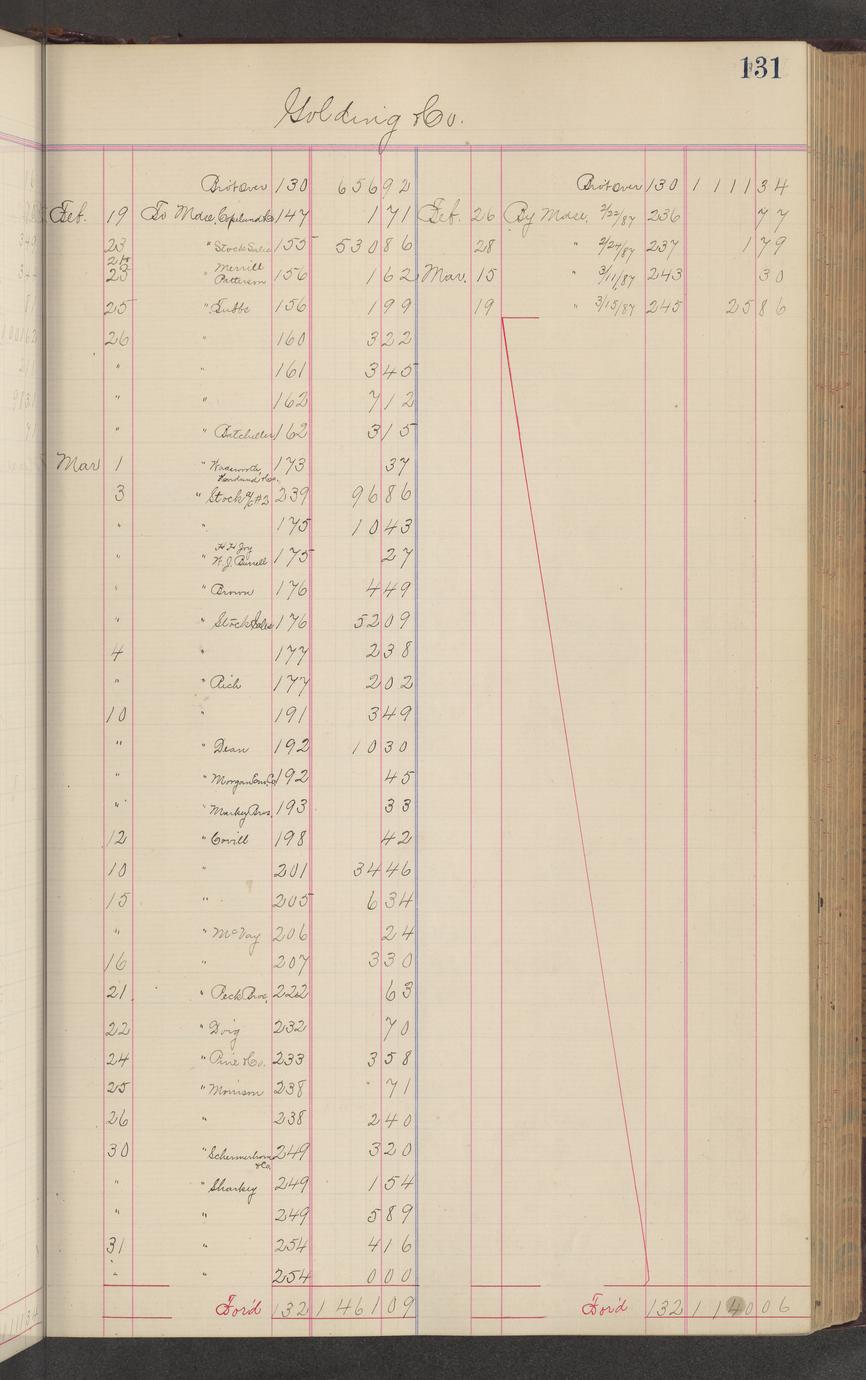 131
Golding & Co.
Bro't over 130 656 92 Bro't over 130 1 111 34
Feb. 19 To Mdse, Copeland & Co 147 1 71 Feb. 26 By Mdse, 2/22/87 236 77
23 " Stock Sales 155 530 86 28 " 2/24/87 237 1 79
" Merrill
25 Patterson 156 1 62 Mar. 15 " 3/11/87 243 30
25 " Tubbs 156 1 99 19 " 3/15/87 245 25 86
26 " 160 3 22
" " 161 3 45
" " 162 7 12
" " Batcheller 162 3 15
Mar 1 " 173 37
3 " Stock a/c #2 239 96 86
" " 175 10 43
" " H H Joy
W. J. Burrell 175 27
" " Brown 176 4 49
" " Stock Sales 176 52 09
4 " 177 2 38
" " Rich 177 2 02
10 " 191 3 49
" " Dean 192 10 30
" " Morgan Env. Co 192 45
" " Markey Bros. 193 33
12 " Covill 198 42
10 " 201 34 46
15 " 205 6 34
" " McVay 206 24
16 " 207 3 30
21 " Peck Bros. 222 63
22 " Doig 232 70
24 " Pine & Co. 233 3 58
25 " Morrison 238 71
26 " 238 2 40
30 " Schermerhorn
& Co. 249 3 20
" " Sharkey 249 1 54
" " 249 5 89
31 " 254 4 16
" " 254 0 00
For'd 132 1 461 09 For'd 132 1 140 06